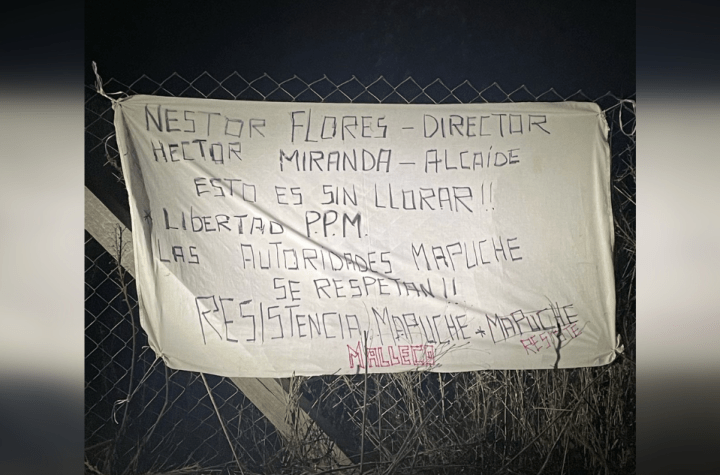 NESTOR FLORES - DIRECTOR
HECTOR MIRANDA - ALCAÍDE
ESTO ES SIN LLORAR!!
* LIBERTAD P.P.M.
LAS AUTORIDADES MAPUCHE
SE RESPETAN!!
RESISTENCIA MAPUCHE + MAPUCHE
MALLECO